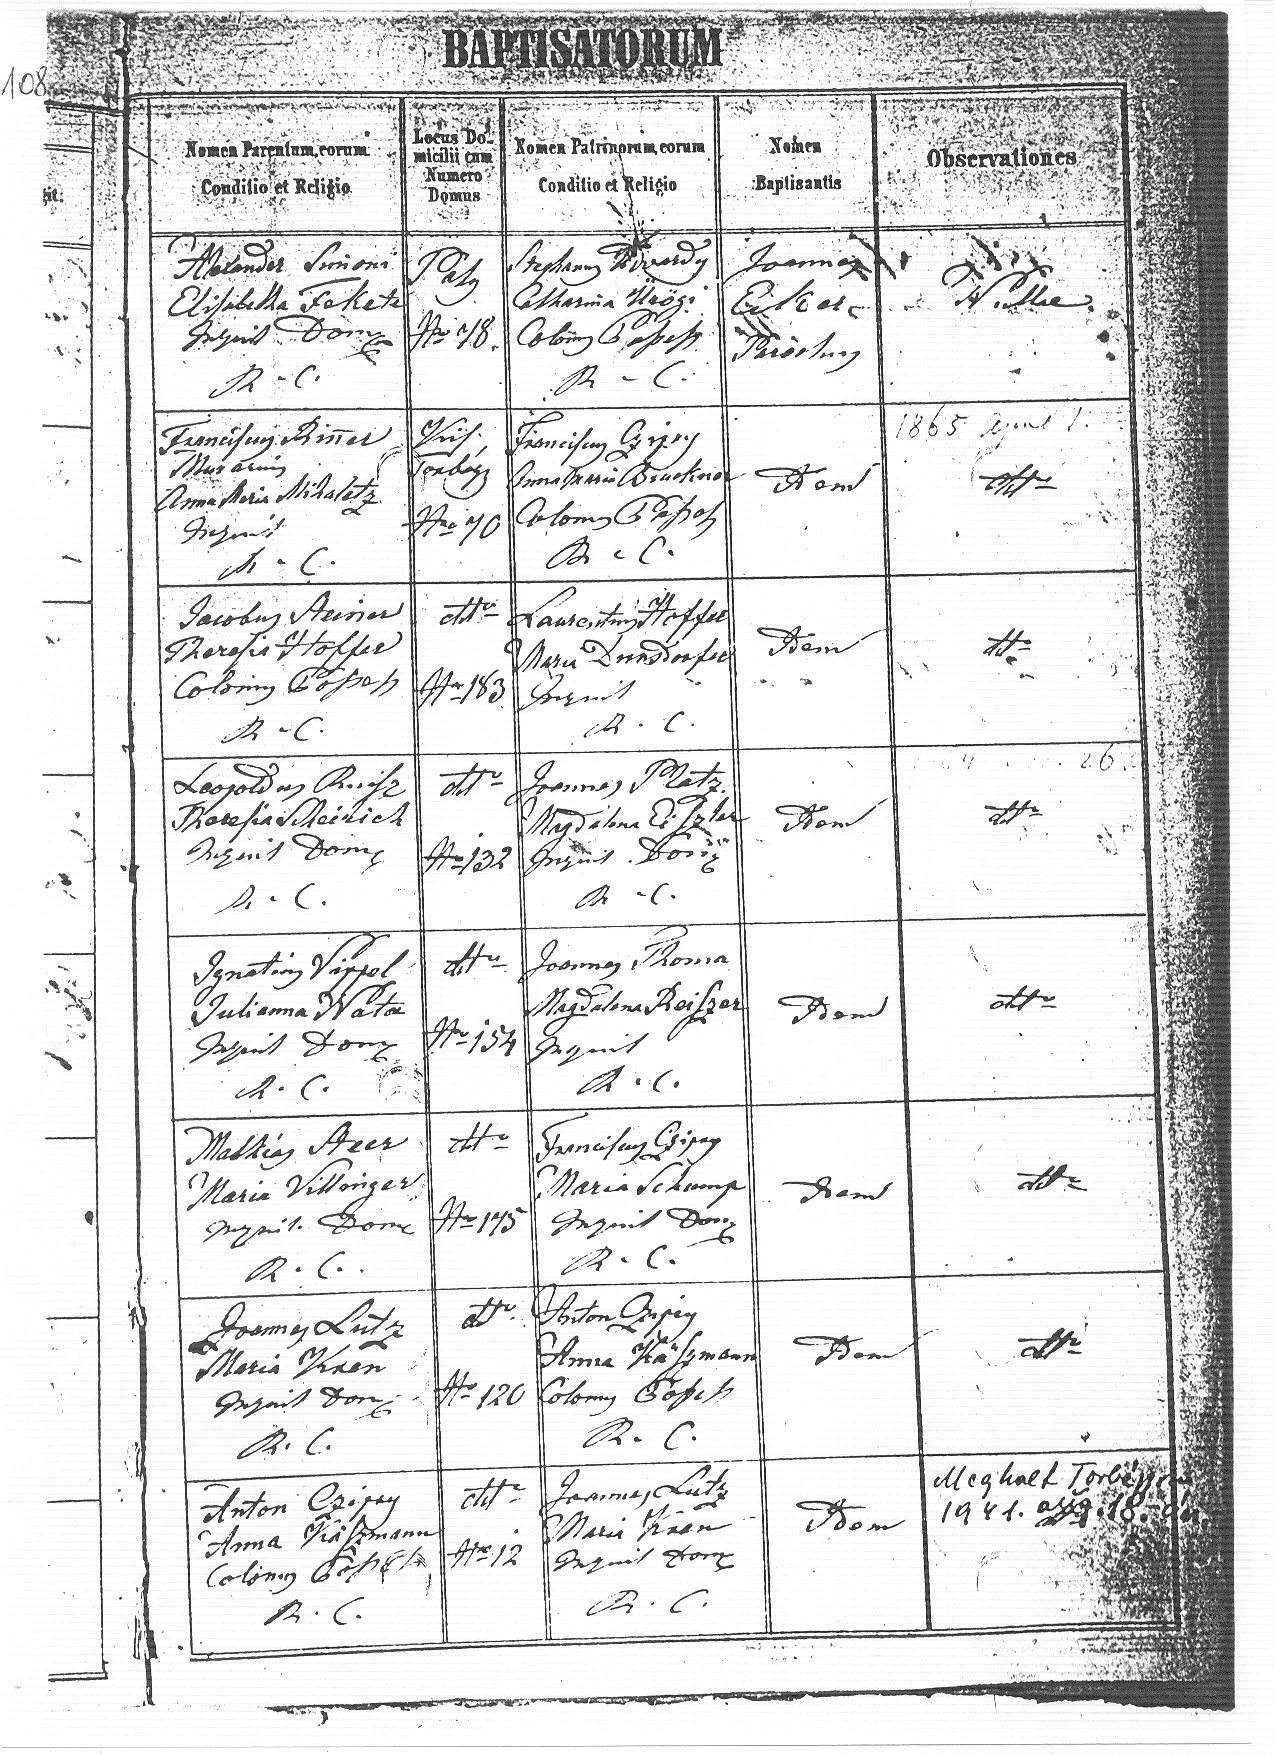 108
BAPTISATORUM
Nomen Parentum, eorum
Conditio et Religio
Locus Do-
micilii cum
Numero
Domus
Nomen Patrinorum, eorum
Conditio et Religio
Nomen
Baptisantis
Observationes
Alexander Simoni
Elisabetha Fekete
Inquil Dom
R - C.
Paty
Nro 78.
Stephanus
Catharina
Colonus
R - C.
Joannes
Eiker
Parochus
Nullae
Franciscus Rinner
Murarius
Anna Maria Mihaletz
Inquil
R - C.
Kis
Torbágy
Nro 70
Franciscus Czipry
Anna Maria Bruckner
Colonus
R - C.
Idem
1865 April 1.
dtto
Jacobus Steiner
Theresia Hoffer
Colonus
R - C.
dtto
Nro 183
Laurentius Hoffer
Maria Dunsdorfer
Inquil
R - C.
Idem
dtto
Leopoldus
Theresia
Inquil Dom
R - C.
dtto
Nro 132
Joannes Platz
Magdalena Eiszler
Inquil Dom
R - C.
Idem
26.
dtto
Ignatius Vippel
Julianna Wata
Inquil Dom
R - C.
dtto
Nro 154
Joannes Thoma
Magdalena Reiszer
Inquil
R - C.
Idem
dtto
Mathias Steer
Maria Villinger
Inquil. Dom
R - C.
dtto
Nro 175
Franciscus Czipry
Maria Schump
Inquil Dom
R - C.
Idem
dtto
Joannes Lutz
Maria Kren
Inquil Dom
R. C.
dtto
Nro 120
Anton Czipry
Anna Käszmann
Colonus
R - C.
Idem
dtto
Anton Czipry
Anna Käszmann
Colonus
R. C.
dtto
Nro 12
Joannes Lutz
Maria Kren
Inquil Dom
R. C.
Idem
Meghalt Torbágyon
1941. aug. 18.-án.